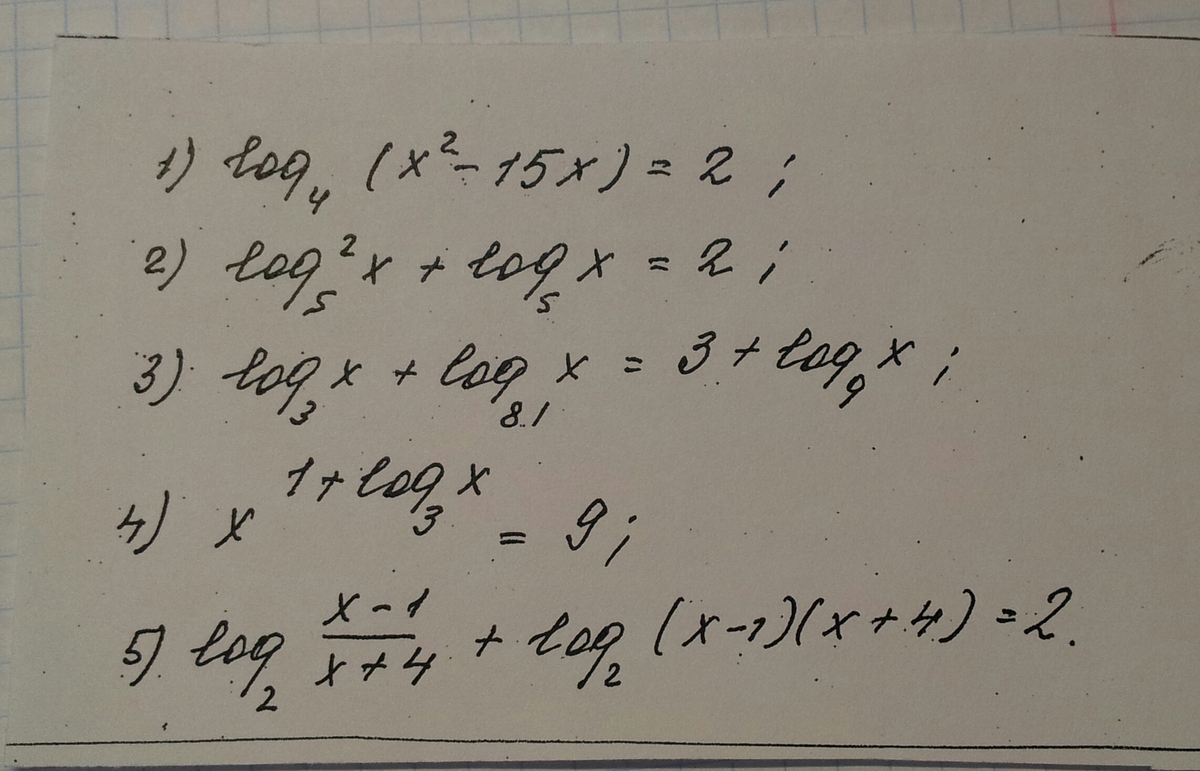 1) log₄ (x² - 15x) = 2 ;
2) log₅² x + log₅ x = 2 ;
3) log₃ x + log₈₁ x = 3 + log₉ x ;
4) x^(1 + log₃ x) = 9 ;
5) log₂ (x - 1)/(x + 4) + log₂ (x - 1)(x + 4) = 2.